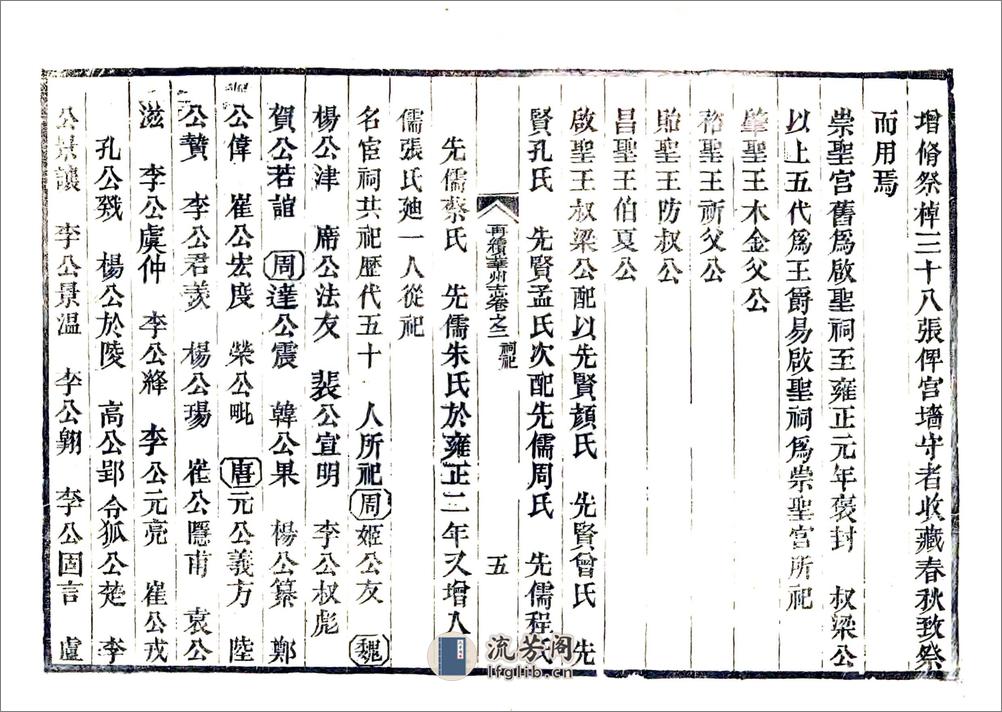 增脩祭棹三十八張俾宫墻守者收藏春秋致祭
而用焉
崇聖宫舊爲啟聖祠至雍正元年褒封　叔梁公
以上五代爲王爵易啟聖祠爲崇聖宫所祀
肇聖王木金父公
裕聖王祈父公
貽聖王防叔公
昌聖王伯夏公
啟聖王叔梁公配以先賢顔氏　先賢曾氏　先
賢孔氏　先賢孟氏次配先儒周氏　先儒程氏
再續華州志卷之二　祠祀　五
先儒蔡氏　先儒朱氏於雍正二年又增入
儒張氏廸一人從祀
名宦祠共祀歴代五十　人所祀周姬公友　魏
楊公津　席公法友　裴公宣明　李公叔彪
賀公若誼　周達公震　韓公果　楊公纂　鄭
公偉　崔公宏度　榮公毗　唐元公義方　陸
公贄　李公君羡　楊公瑒　崔公隱甫　袁公
滋　李公虞仲　李公絳　李公元亮　崔公戎
孔公戣　楊公於陵　高公郢　令狐公楚　李
公景讓　李公景温　李公翱　李公固言　盧
流芳阁
lfglib.cn